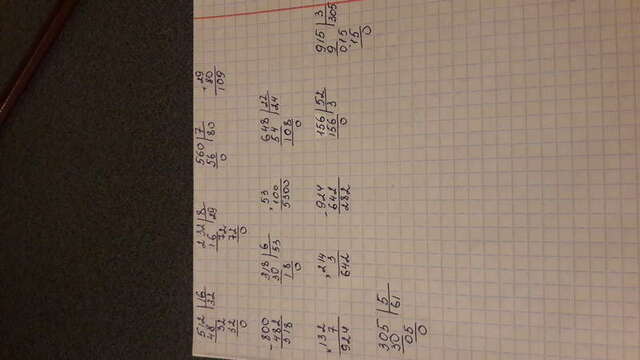 512 | 16 232 | 8 560 | 7 + 29
48 | 32 16 | 29 56 | 80 80
32 72 0 109
32 72
0 0
- 800 318 | 6 × 53 648 | 27
482 30 | 53 100 54 | 24
318 18 5300 108
0 0
× 132 × 214 - 924 156 | 52 915 | 3
7 3 642 156 | 3 9 | 305
924 642 282 0 015
15
0
305 | 5
30 | 61
05
0